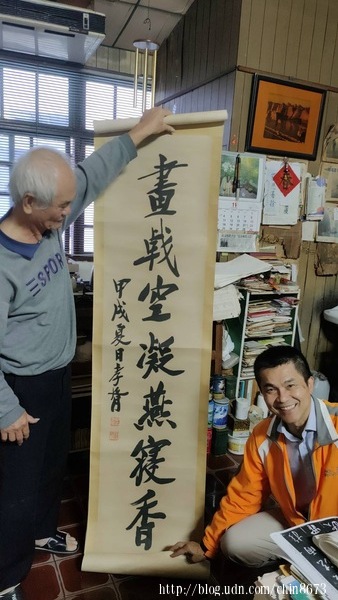 畫戟空凝燕寢香
甲戌夏日孝胥
SPOR
http://blog.udn.com/chin8673